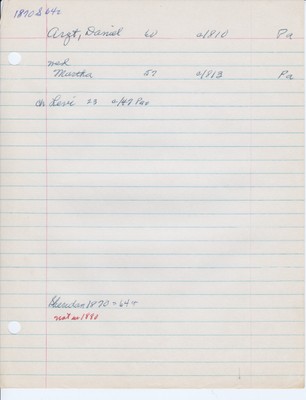 1870 S 642
Arzt, Daniel 60 a/1810 Pa
wed
Martha 57 a/1813 Pa
ch Levi 23 a/47 Pa
Sheridan 1870 = 64
not in 1880